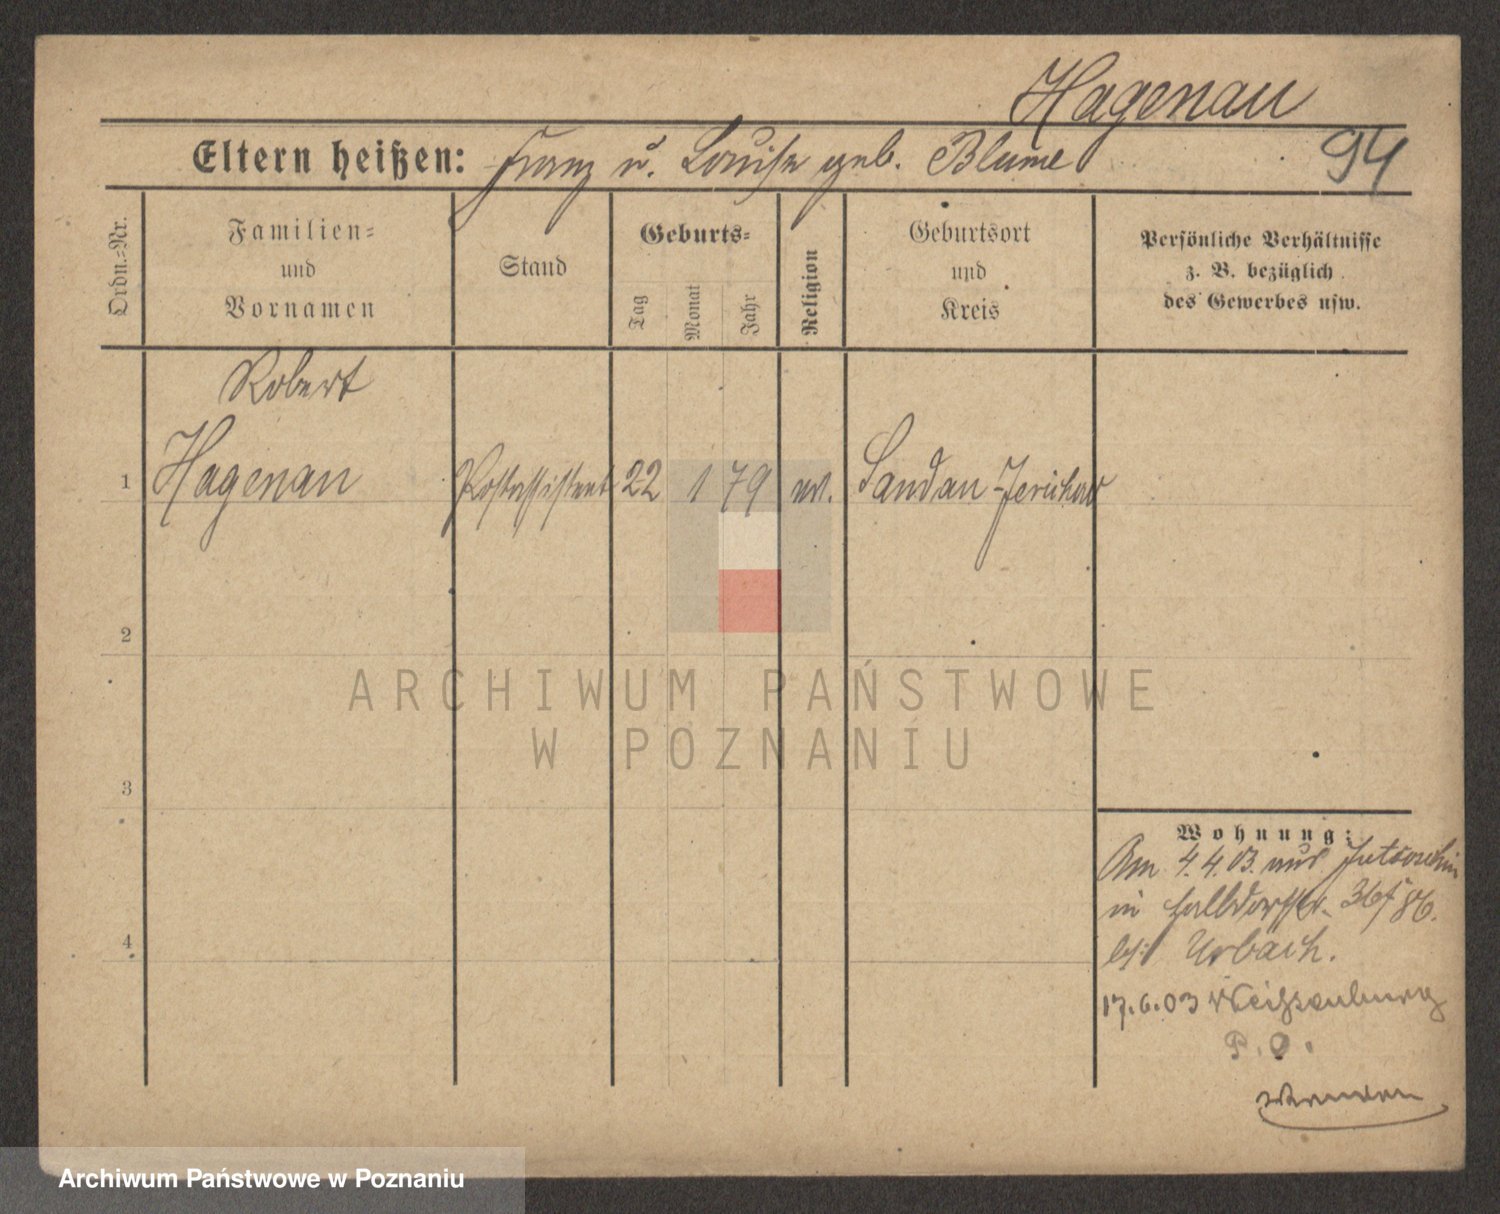 Hagenau
Eltern heißen: Franz u. Louise geb. Blume
94
Ordn.-Nr.
Familien-
und
Vornamen
Stand
Geburts-
Tag
Monat
Jahr
Religion
Geburtsort
und
Kreis
Persönliche Verhältnisse
z. B. bezüglich
des Gewerbes usw.
Robert
1 Hagenau Postassistent 22 1 79 ev. Sandau-Jerichow
2
3
4
Wohnung:
Am 4.4.03. aus Jutroschin
in 86.
bei Urbach.
17.6.03 Weißenburg
P. O.
ARCHIWUM PAŃSTWOWE
W POZNANIU
Archiwum Państwowe w Poznaniu